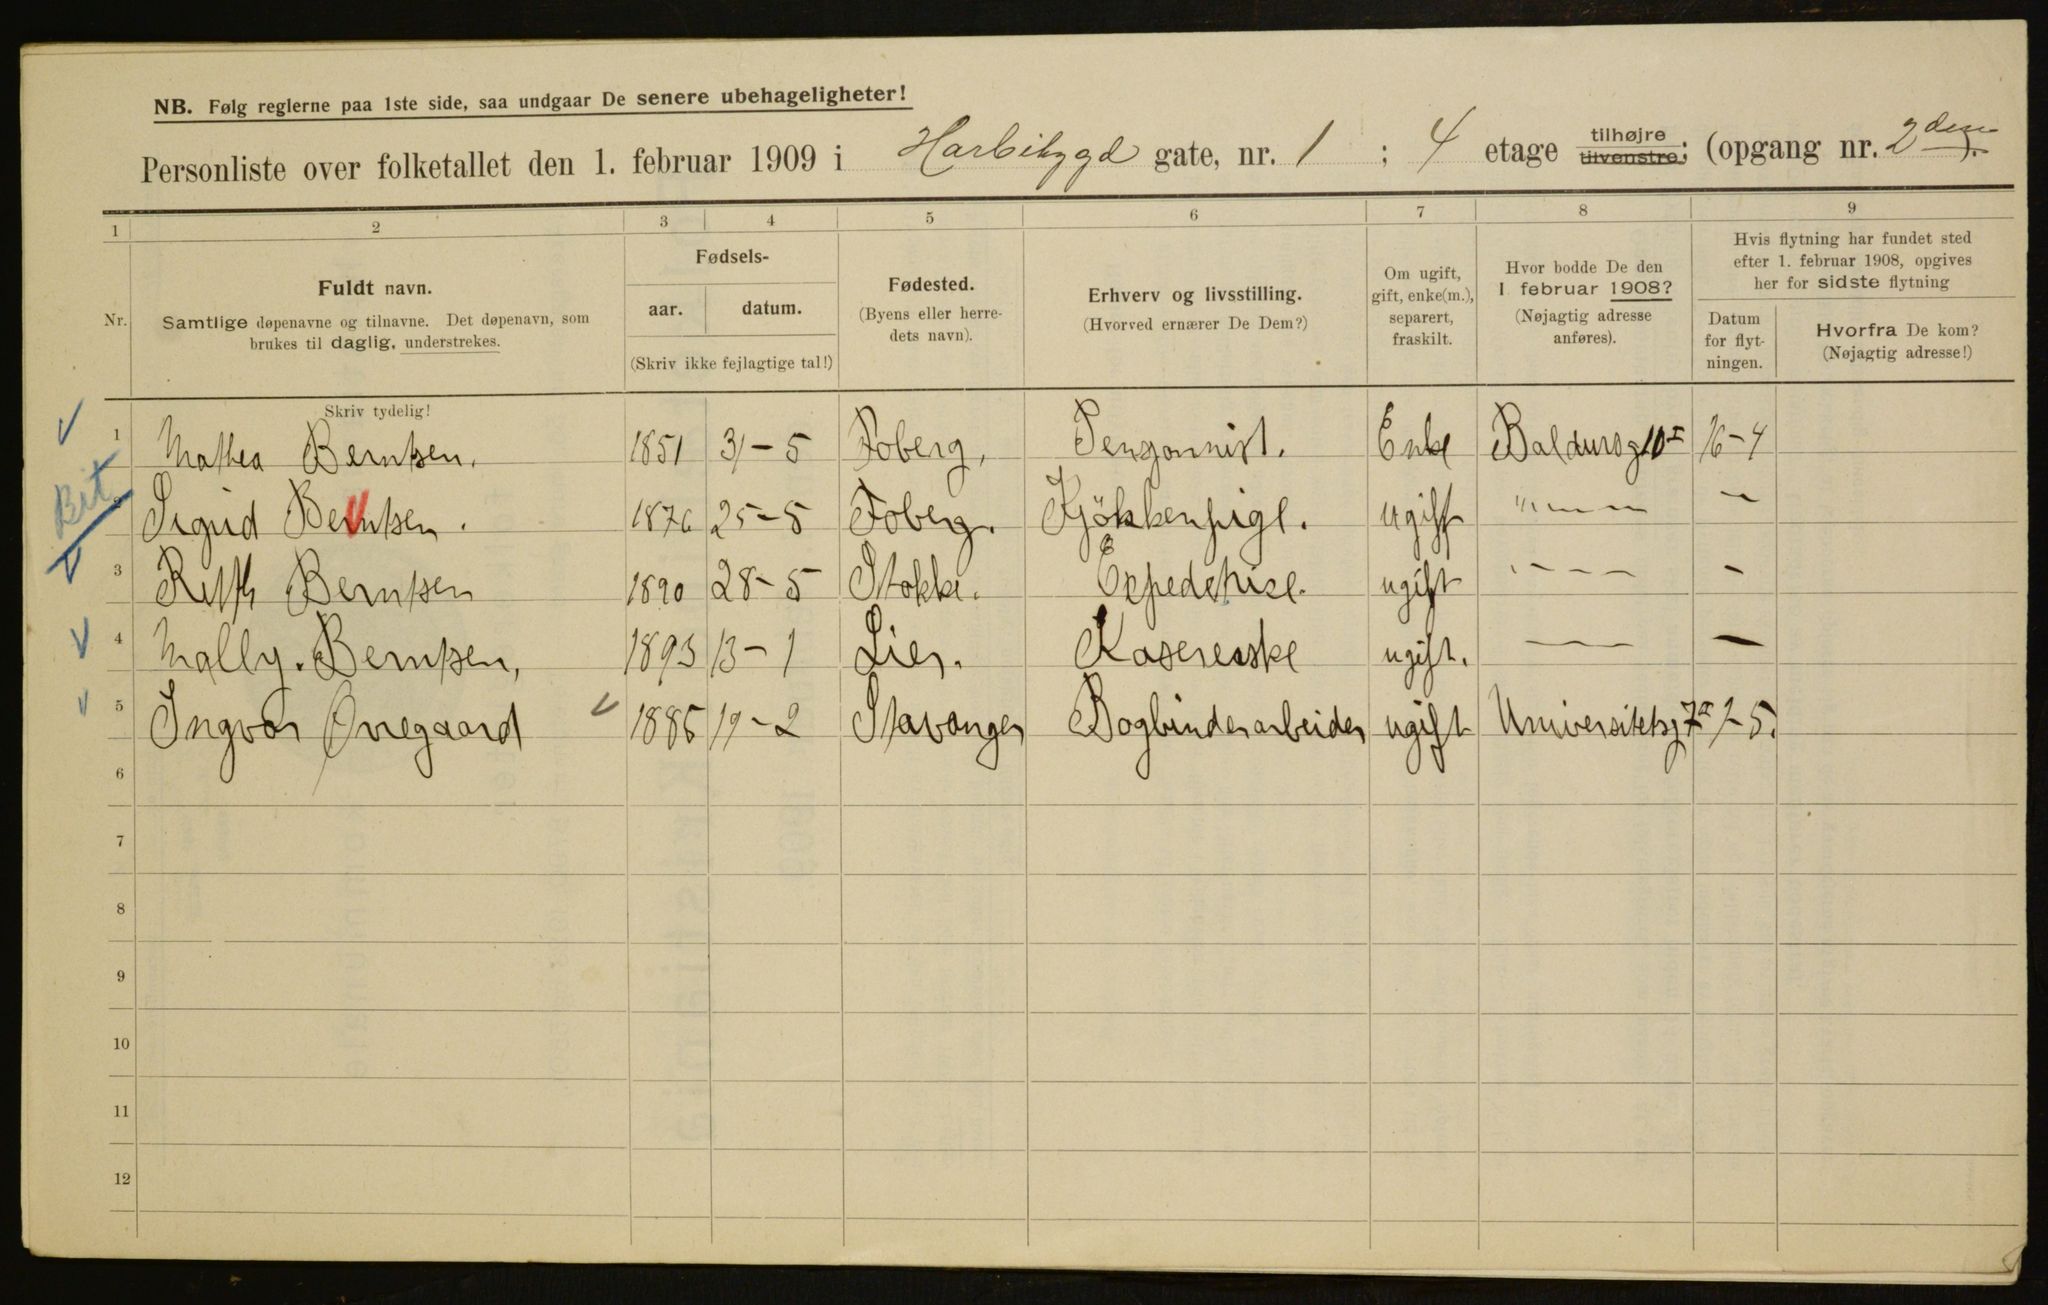 NB. Følg reglerne paa 1ste side, saa undgaar De senere ubehageligheter!
Personliste over folketallet den 1. februar 1909 i Harbitzgd gate, nr. 1 ; 4 etage tilhøjre tilvenstre; (opgang nr. 2den).
1 2 3 4 5 6 7 8 9
Nr.
Fuldt navn.
Samtlige døpenavne og tilnavne. Det døpenavn, som
brukes til daglig, understrekes.
Fødsels-
aar. datum.
(Skriv ikke fejlagtige tal!)
Fødested.
(Byens eller herre-
dets navn).
Erhverv og livsstilling.
(Hvorved ernærer De Dem?)
Om ugift,
gift, enke(m.),
separert,
fraskilt.
Hvor bodde De den
1 februar 1908?
(Nøjagtig adresse
anføres).
Hvis flytning har fundet sted
efter 1. februar 1908, opgives
her for sidste flytning
Datum
for flyt-
ningen.
Hvorfra De kom?
(Nøjagtig adresse!)
Skriv tydelig!
1 Mathea Berntsen. 1851 31-5 Foberg. Pensonnist. Enke Baldursg 10 I 16-4
Bet
2 Sigrid Berntsen. 1876 25-5 Foberg. Kjökkenpige. ugift " — — — —
3 Berntsen 1890 28-5 Stokke. Expedetrise. ugift " — — — -
4 Mally. Berntsen, 1893 13-1 Lier. Kasereske ugift. — — —
5 Ingvar Ovregaard 1886 19-2 Stavanger Bogbinderarbeider ugift Universitetsg 7 1-5.
6
7
8
9
10
11
12